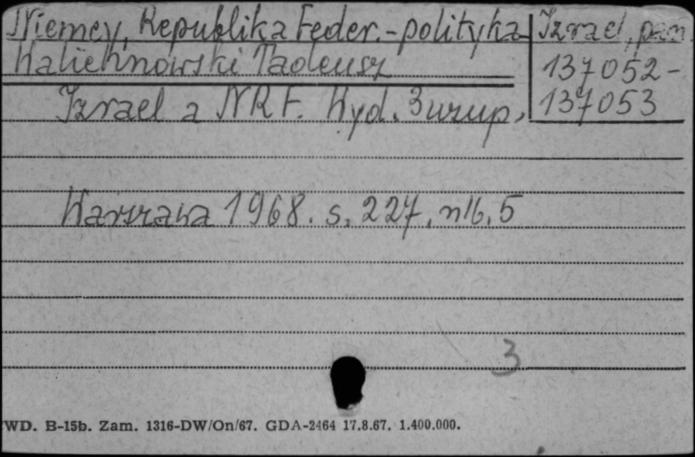 Niemcy, Republika Feder.-polityka Izrael, pań
Walichnowski Tadeusz 137052-
Izrael a NRF. Wyd. 3 uzup. 137053
Warszawa 1968. s. 227, nlb. 5
3
WD. B-15b. Zam. 1316-DW/On/67. GDA-2464 17.8.67. 1.400.000.